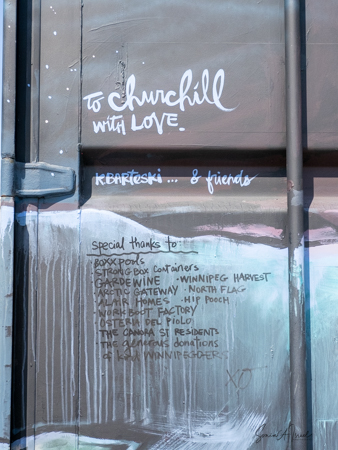 To churchill
with LOVE.
KBarteski ... & friends
special thanks to:
ROXXPOOLS
• STRONG BOX CONTAINERS
• GARDEWINE • WINNIPEG HARVEST
• ARCTIC GATEWAY • NORTH FLAG
• ALAIR HOMES • HIP POOCH
• WORK BOOT FACTORY
• OSTERIA DEL PIOLO
• THE CANORA ST RESIDENTS
• THE generous donations
of WINNIPEGGERS
XO